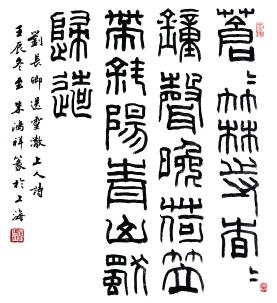 蒼〻竹林寺杳〻
鐘聲晚荷笠
帶斜陽青山獨
歸遠
劉長卿送靈澈上人詩
壬辰冬至朱鴻祥篆於上海